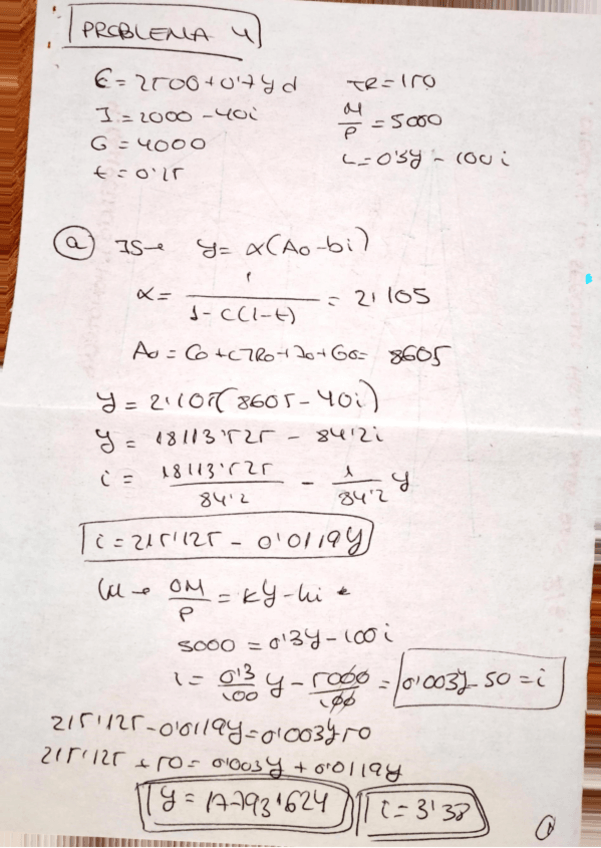 PROBLEMA 4
C = 2500 + 0'7yd TR = 150
I = 2000 - 40i M/P = 5000
G = 4000 L = 0'3y - 100i
t = 0'25
a) IS → y = α(A0 - bi)
α = 1/(1 - c(1-t)) = 2'105
A0 = C0 + cTR0 + I0 + G0 = 8605
y = 2'105(8605 - 40i)
y = 18113'525 - 84'2i
i = 18113'525/84'2 - 1/84'2 y
i = 215'125 - 0'0119y
LM → OM/P = ky - hi
5000 = 0'3y - 100i
i = 0'3/100 y - 5000/100 = 0'003y - 50 = i
215'125 - 0'0119y = 0'003y 50
215'125 + 50 = 0'003y + 0'0119y
y = 17793'624 i = 3'38
1